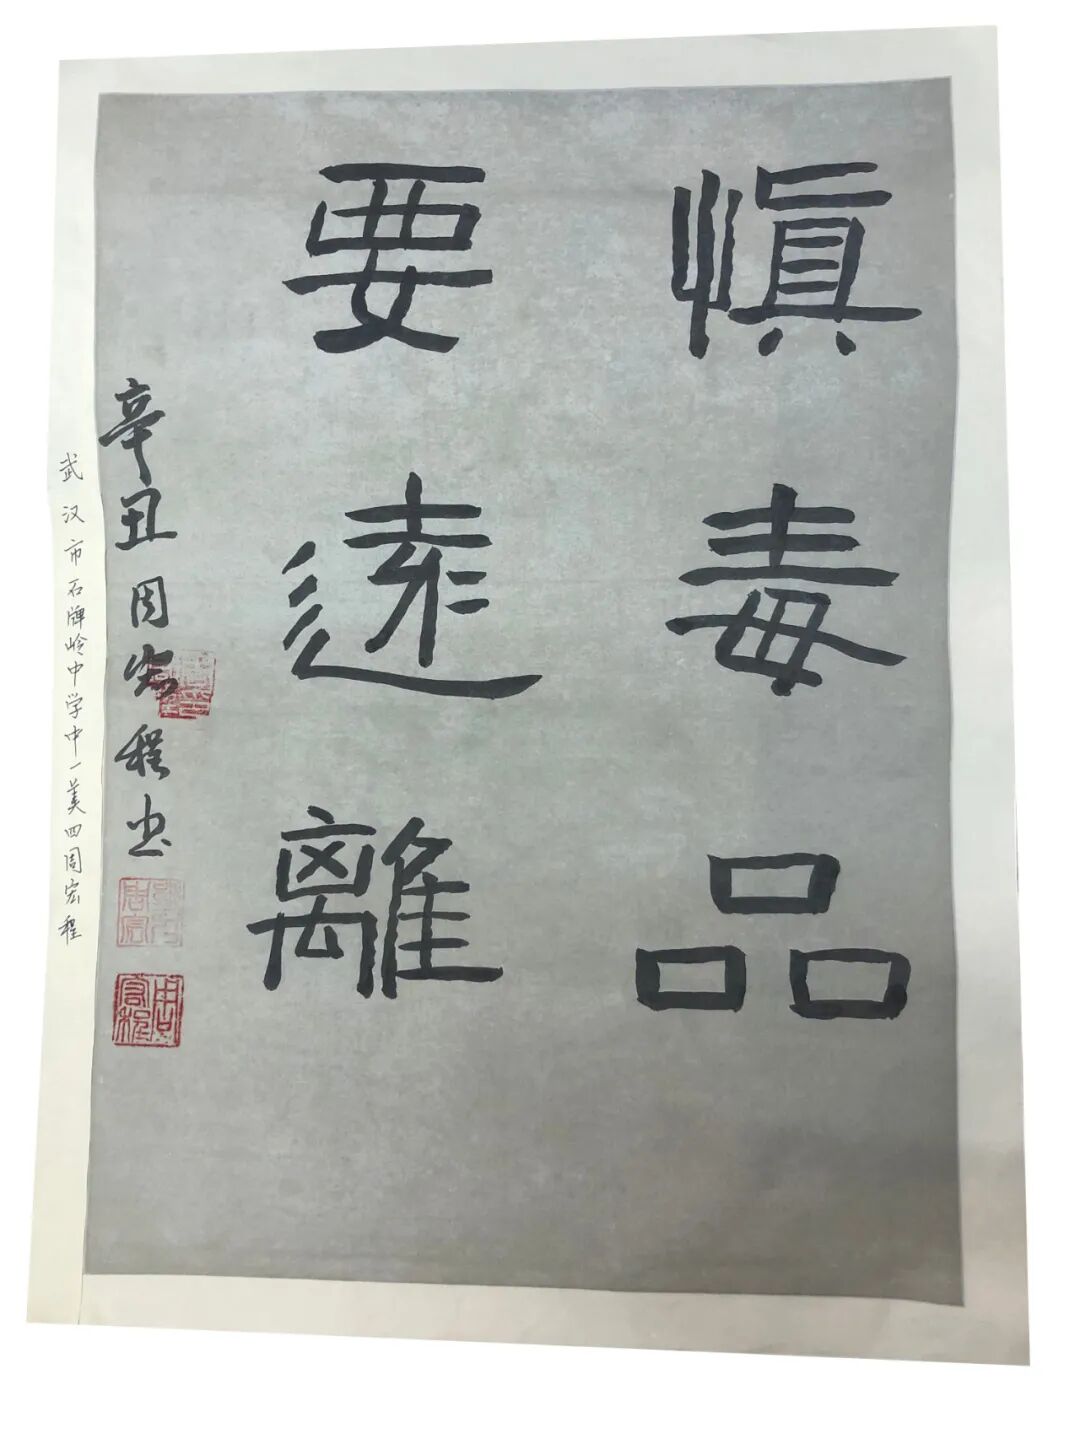 慎毒品
要遠離
辛丑周宏程书
武汉市石牌岭中学中一美四周宏程